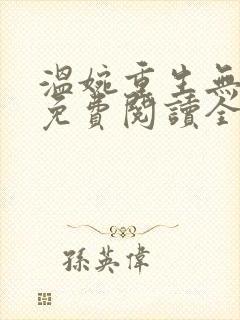 溫婉重生無
免費閱讀全
孫英偉